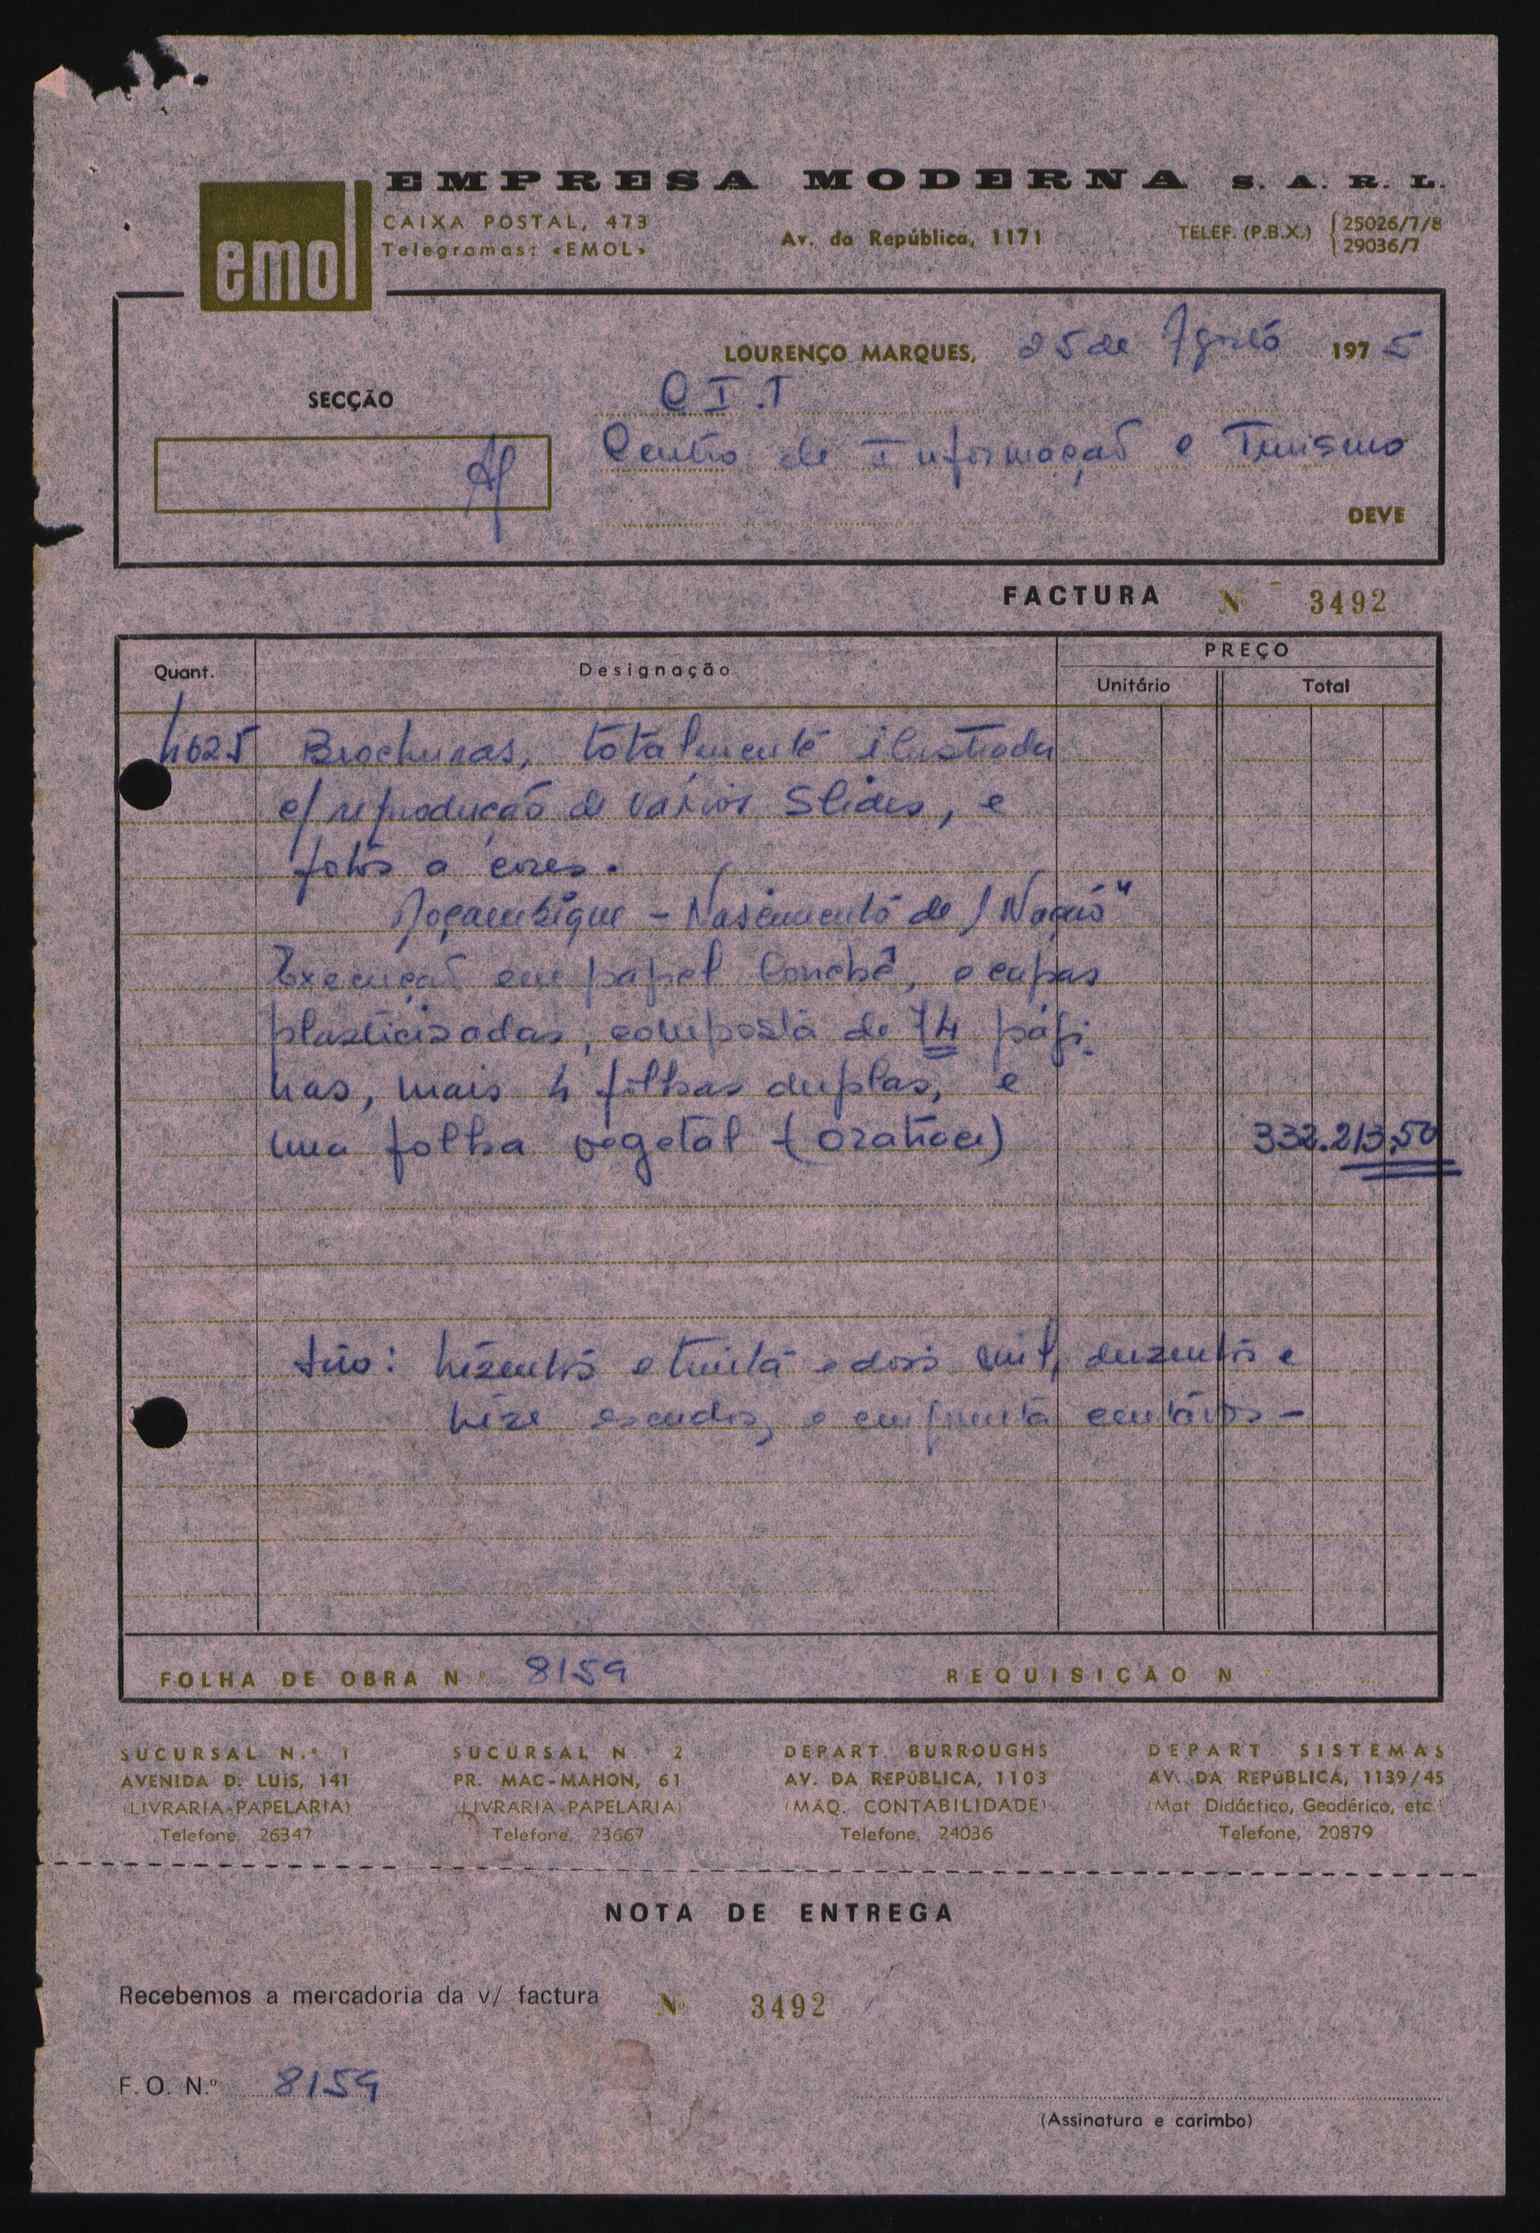 EMPRESA MODERNA S. A. R. L.
emol
CAIXA POSTAL, 473
Telegramas: «EMOL»
Av. da República, 1171
TELEF. (P.B.X.) { 25026/7/8
29036/7
LOURENÇO MARQUES, 25 de Agosto 1975
SECÇÃO
C I.T
Centro de Informação e Turismo
DEVE
FACTURA Nº 3492
Quant. Designação PREÇO
Unitário Total
4625 Brochuras, totalmente ilustrada
c/ reprodução de varios Slides, e
fotos a cores.
Moçambique - Nascimento de 1 Nação"
Execução em papel Couché, e capas
plasticizadas, composta de 74 pági-
nas, mais 4 folhas duplas, e
uma folha vegetal (ozatiace) 332.213,50
São: trezentos e trinta e dois mil, duzentos e
treze escudos, e cinquenta centavos -
FOLHA DE OBRA N.º 8159 REQUISIÇÃO N.º
SUCURSAL N.º 1
AVENIDA D. LUÍS, 141
(LIVRARIA-PAPELARIA)
Telefone, 26347
SUCURSAL N.º 2
PR. MAC-MAHON, 61
(LIVRARIA-PAPELARIA)
Telefone, 23667
DEPART. BURROUGHS
AV. DA REPÚBLICA, 1103
(MÁQ. CONTABILIDADE)
Telefone, 24036
DEPART. SISTEMAS
AV. DA REPÚBLICA, 1139/45
(Mat. Didáctico, Geodérico, etc.)
Telefone, 20879
NOTA DE ENTREGA
Recebemos a mercadoria da v/ factura Nº 3492
F. O. N.º 8159
(Assinatura e carimbo)